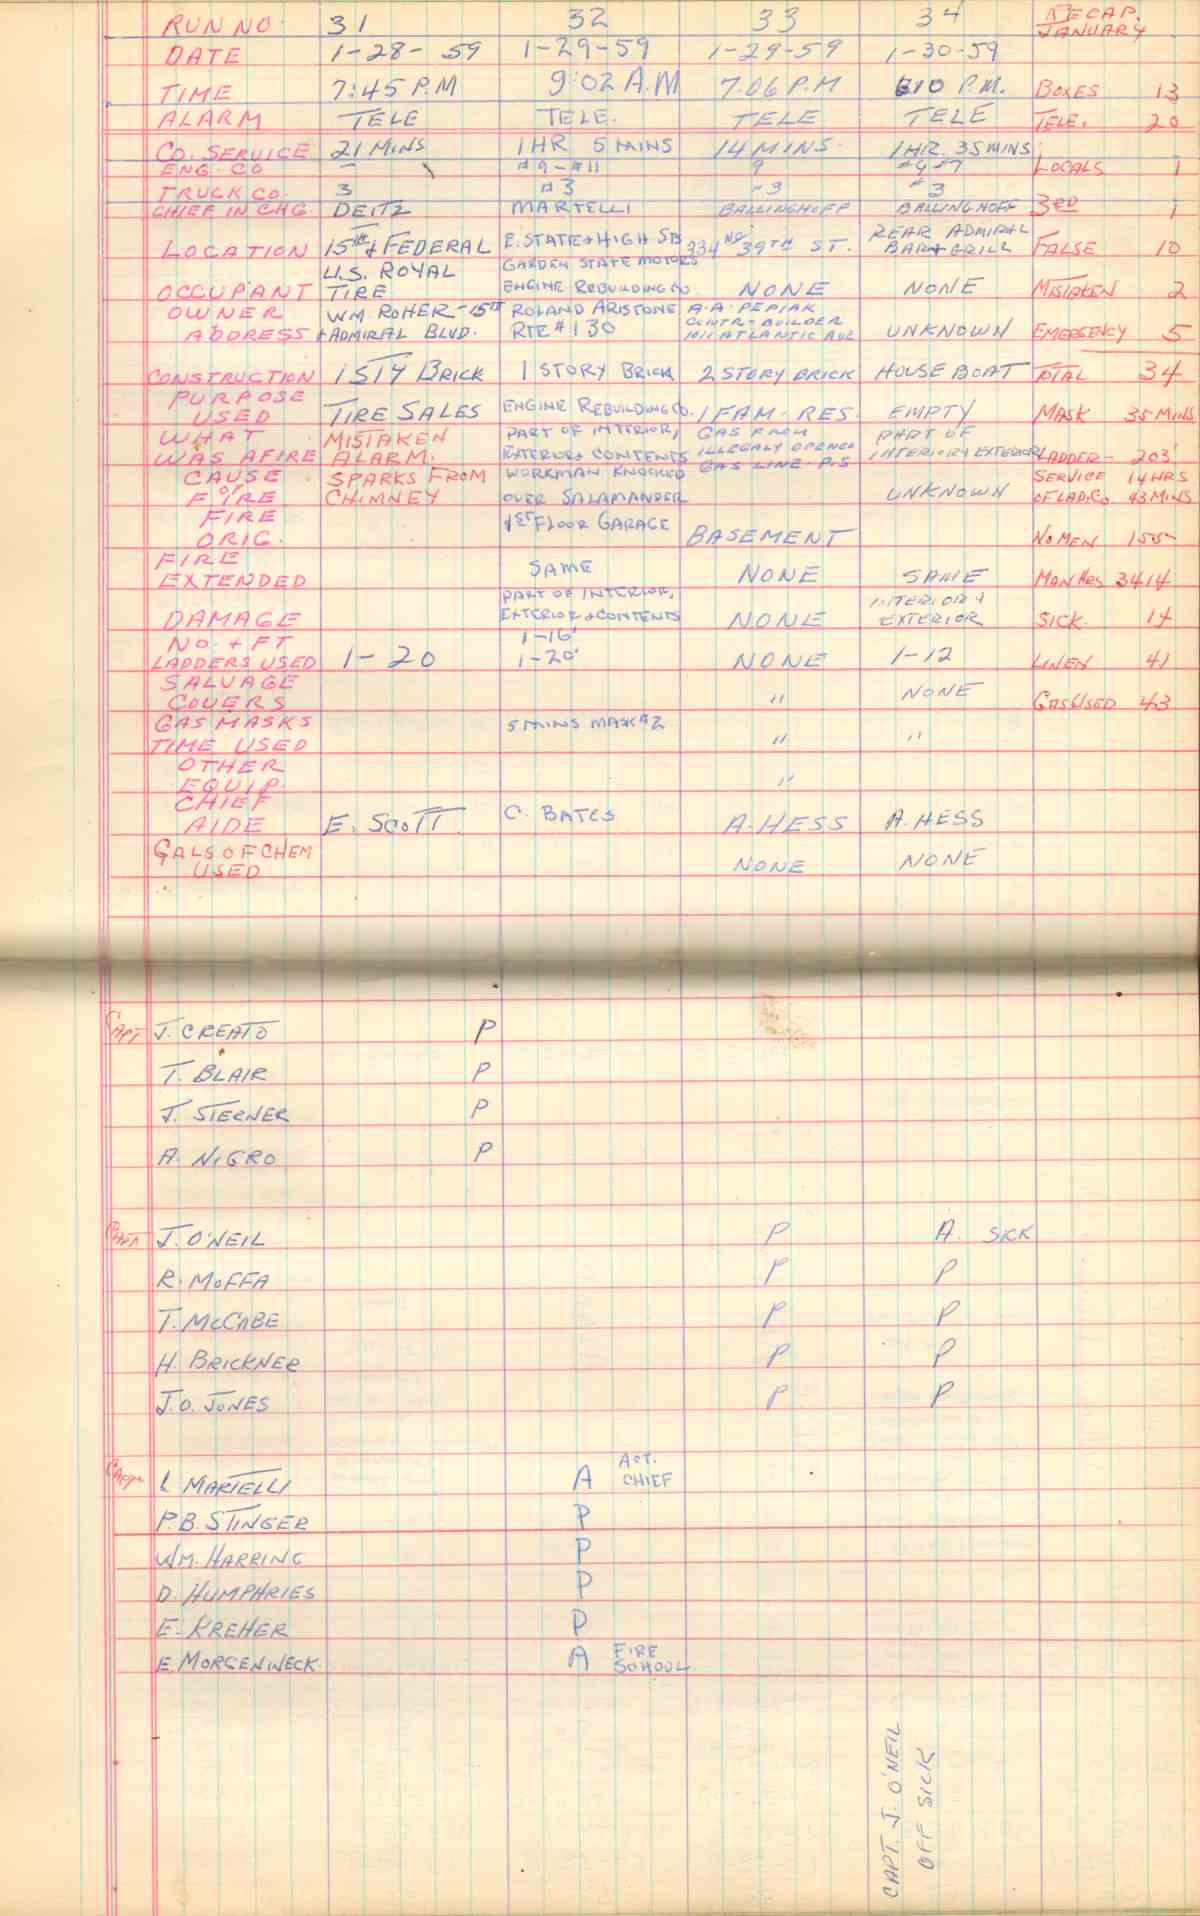 RUN NO. 31 32 33 34 RECAP. JANUARY
DATE 1-28-59 1-29-59 1-29-59 1-30-59
TIME 7:45 P.M 9:02 A.M 7.06 P.M 610 P.M. BOXES 13
ALARM TELE TELE. TELE TELE TELE. 20
CO. SERVICE 21 MINS 1 HR 5 MINS 14 MINS. 1 HR. 35 MINS
ENG. CO — #9-#11 9 #9-#7 LOCALS 1
TRUCK CO. 3 #3 #3 #3
CHIEF IN CHG. DEITZ MARTELLI BALLINGHOFF BALLINGHOFF 3RD 1
LOCATION 15TH & FEDERAL E. STATE & HIGH STS 334 NO 39TH ST. REAR ADMIRAL BAR & GRILL FALSE 10
OCCUPANT U.S. ROYAL TIRE GARDEN STATE MOTORS ENGINE REBUILDING CO. NONE NONE MISTAKEN 2
OWNER ADDRESS WM. ROHER-15TH & ADMIRAL BLVD. ROLAND ARISTONE RTE #130 A.A. PEPIAK CONTR-BUILDER 1011 ATLANTIC AVE UNKNOWN EMERGENCY 5
CONSTRUCTION 1 STY BRICK 1 STORY BRICK 2 STORY BRICK HOUSE BOAT TOTAL 34
PURPOSE USED TIRE SALES ENGINE REBUILDING CO. 1 FAM-RES. EMPTY MASK 35 MINS
WHAT WAS AFIRE MISTAKEN ALARM. PART OF INTERIOR, EXTERIOR & CONTENTS GAS FROM ILLEGALY OPENED GAS LINE-P.S PART OF INTERIOR & EXTERIOR LADDER- 203'
CAUSE OF FIRE SPARKS FROM CHIMNEY WORKMAN KNOCKED OVER SALAMANDER UNKNOWN SERVICE OF LAD. CO 14 HRS 43 MINS
FIRE ORIG. 1ST FLOOR GARAGE BASEMENT NO MEN 155
FIRE EXTENDED SAME NONE SAME MAN HRS 3414
DAMAGE PART OF INTERIOR, EXTERIOR & CONTENTS NONE INTERIOR & EXTERIOR SICK. 14
NO. & FT LADDERS USED 1-20 1-16' 1-20' NONE 1-12 LINEN 41
SALVAGE COVERS " NONE GAS USED 43
GAS MASKS TIME USED 5 MINS MASK #2 " "
OTHER EQUIP. "
CHIEF AIDE E. SCOTT. C. BATES A. HESS A. HESS
GALS OF CHEM USED NONE NONE
CAPT J. CREATO P
T. BLAIR P
J. STERNER P
A. NIGRO P
CAPT J. O'NEIL P A. SICK
R. MOFFA P P
T. MCCABE P P
H. BRICKNER P P
J.O. JONES P P
CAPT L MARTELLI A ACT. CHIEF
P.B. STINGER P
WM. HARRING P
D. HUMPHRIES P
E. KREHER P
E. MORGENWECK. A FIRE SCHOOL
CAPT. J. O'NEIL
OFF SICK